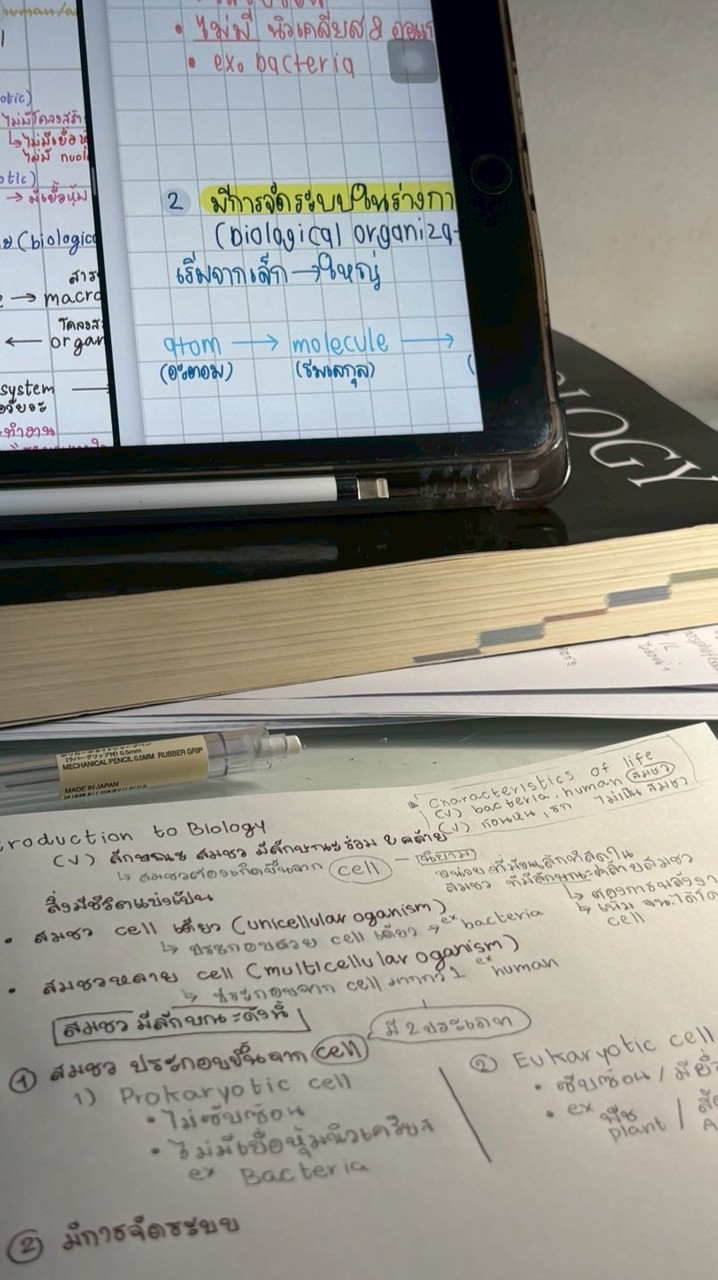 human/a
otic)
ไม่มีโครงสร้า
↳ไม่มีเยื่อหุ้
ไม่มี nucl
otic)
→ มีเยื่อหุ้ม
(biologica
สาร
→ macro
โครงส
← organ
system →
• ไม่มี นิวเคลียส &
• ex. bacteria
2 มีการจัดระบบในร่างกา
(biological organiza-
เริ่มจากเล็ก → ใหญ่
atom → molecule →
(อะตอม) (โมเลกุล) (
OLOGY
MECHANICAL PENCIL 0.5MM RUBBER GRIP
MADE IN JAPAN
Characteristics of life
(√) bacteria, human สมชว
(√) ก้อนหิน, รถ ไม่เป็น สมชว
troduction to Biology
(√) ลักษณะ สมชว มีลักษณะร่วม
↳ สมชวต้องเกิดขึ้นจาก cell — นิยาม
สิ่งมีชีวิตแบ่งเป็น
• สมชว cell เดียว (unicellular oganism)
↳ ประกอบด้วย cell เดียว → ex bacteria
cell
• สมชวหลาย cell (multicellular oganism)
↳ ประกอบจาก cell มากกว่า 1 ex human
สมชว มีลักษณะดังนี้
มี 2 ประเภท
① สมชว ประกอบขึ้นจาก cell
1) Prokaryotic cell
• ไม่ซับซ้อน
• ไม่มีเยื่อหุ้มนิวเครียส
ex Bacteria
② Eukaryotic cell
• ซับซ้อน / มีเยื่
• ex พืช
plant /
② มีการจัดระบบ